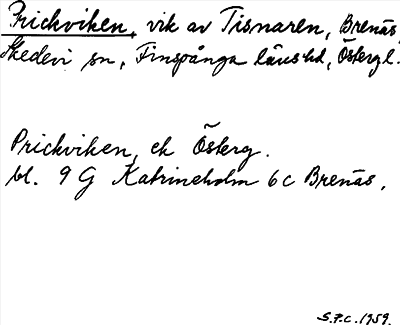 Prickviken, vik av Tisnaren, Brenäs,
Skedevi sn, Finspånga länshd, Östergl.
Prickviken, ek Österg.
bl. 9 G Katrineholm 6c Brenäs.
S.F.C. 1959.